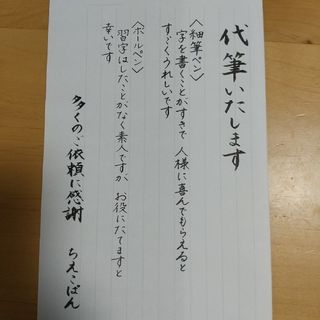 代筆いたします
〈細筆ペン〉
字を書くことがすきで 人様に喜んでもらえると
すごくうれしいです
〈ボールペン〉
習字はしたことがなく素人ですが、お役にたてますと
幸いです
多くのご依頼に感謝 ちえこばん